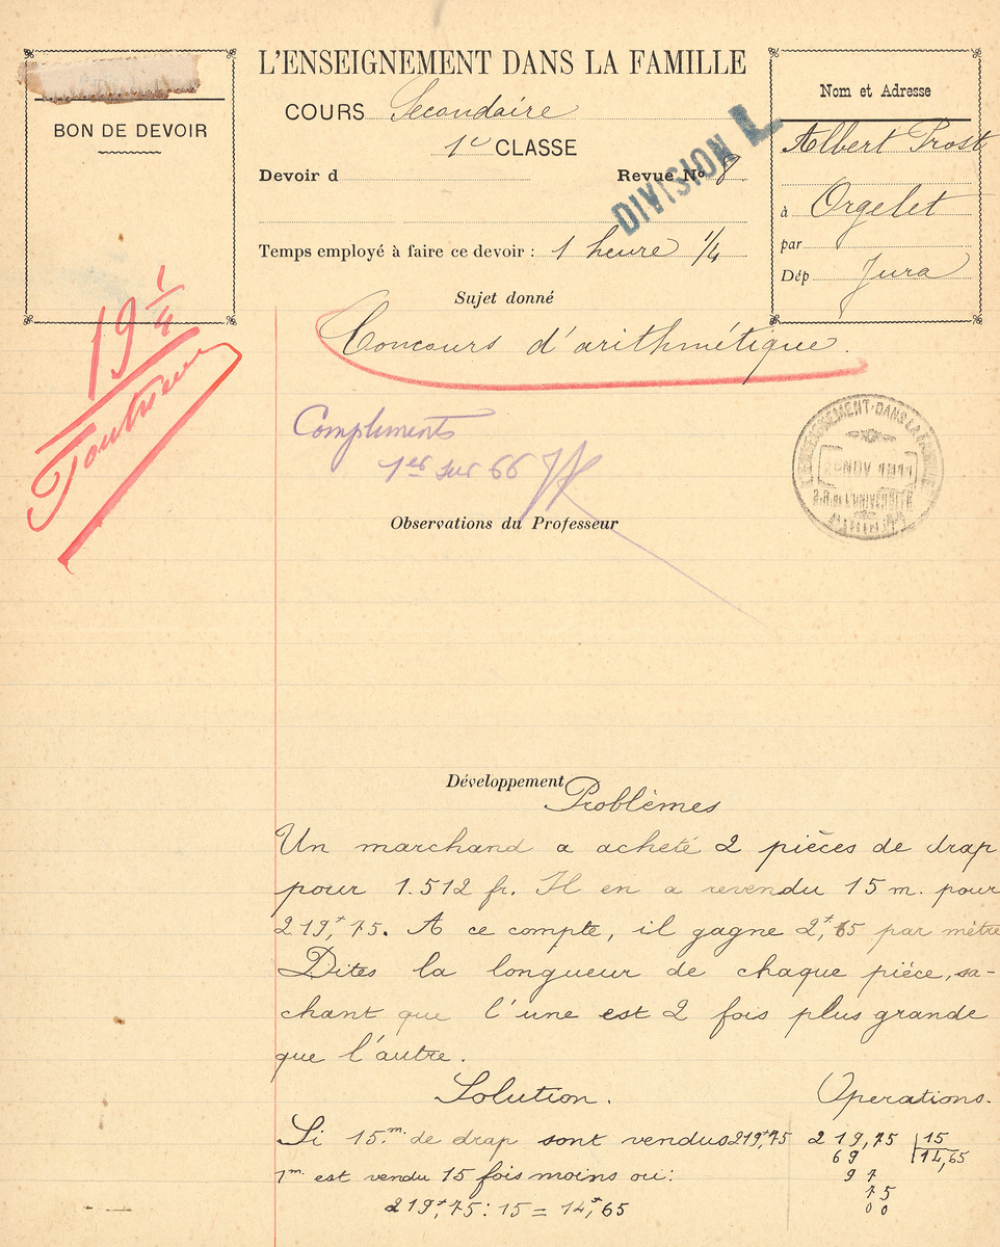 L'ENSEIGNEMENT DANS LA FAMILLE
BON DE DEVOIR
COURS Secondaire
1re CLASSE
Devoir d
Revue No 8
DIVISION L
Temps employé à faire ce devoir : 1 heure 1/4
Nom et Adresse
Albert Prost
à Orgelet
par
Dép Jura
19 1/4
Sujet donné
Concours d'arithmétique.
Compliments
1er sur 66
L'ENSEIGNEMENT DANS LA FAMILLE
NOV 1911
Observations du Professeur
Développement
Problèmes
Un marchand a acheté 2 pièces de drap
pour 1.512 fr. Il en a revendu 15 m. pour
219f,75. A ce compte, il gagne 2f,65 par mètre
Dites la longueur de chaque pièce, sa-
chant que l'une est 2 fois plus grande
que l'autre.
Solution.
Operations.
Si 15m. de drap sont vendus 219f,75
1m. est vendu 15 fois moins ou:
219f,75 : 15 = 14f,65
219,75 | 15
69 | 14,65
97
75
00